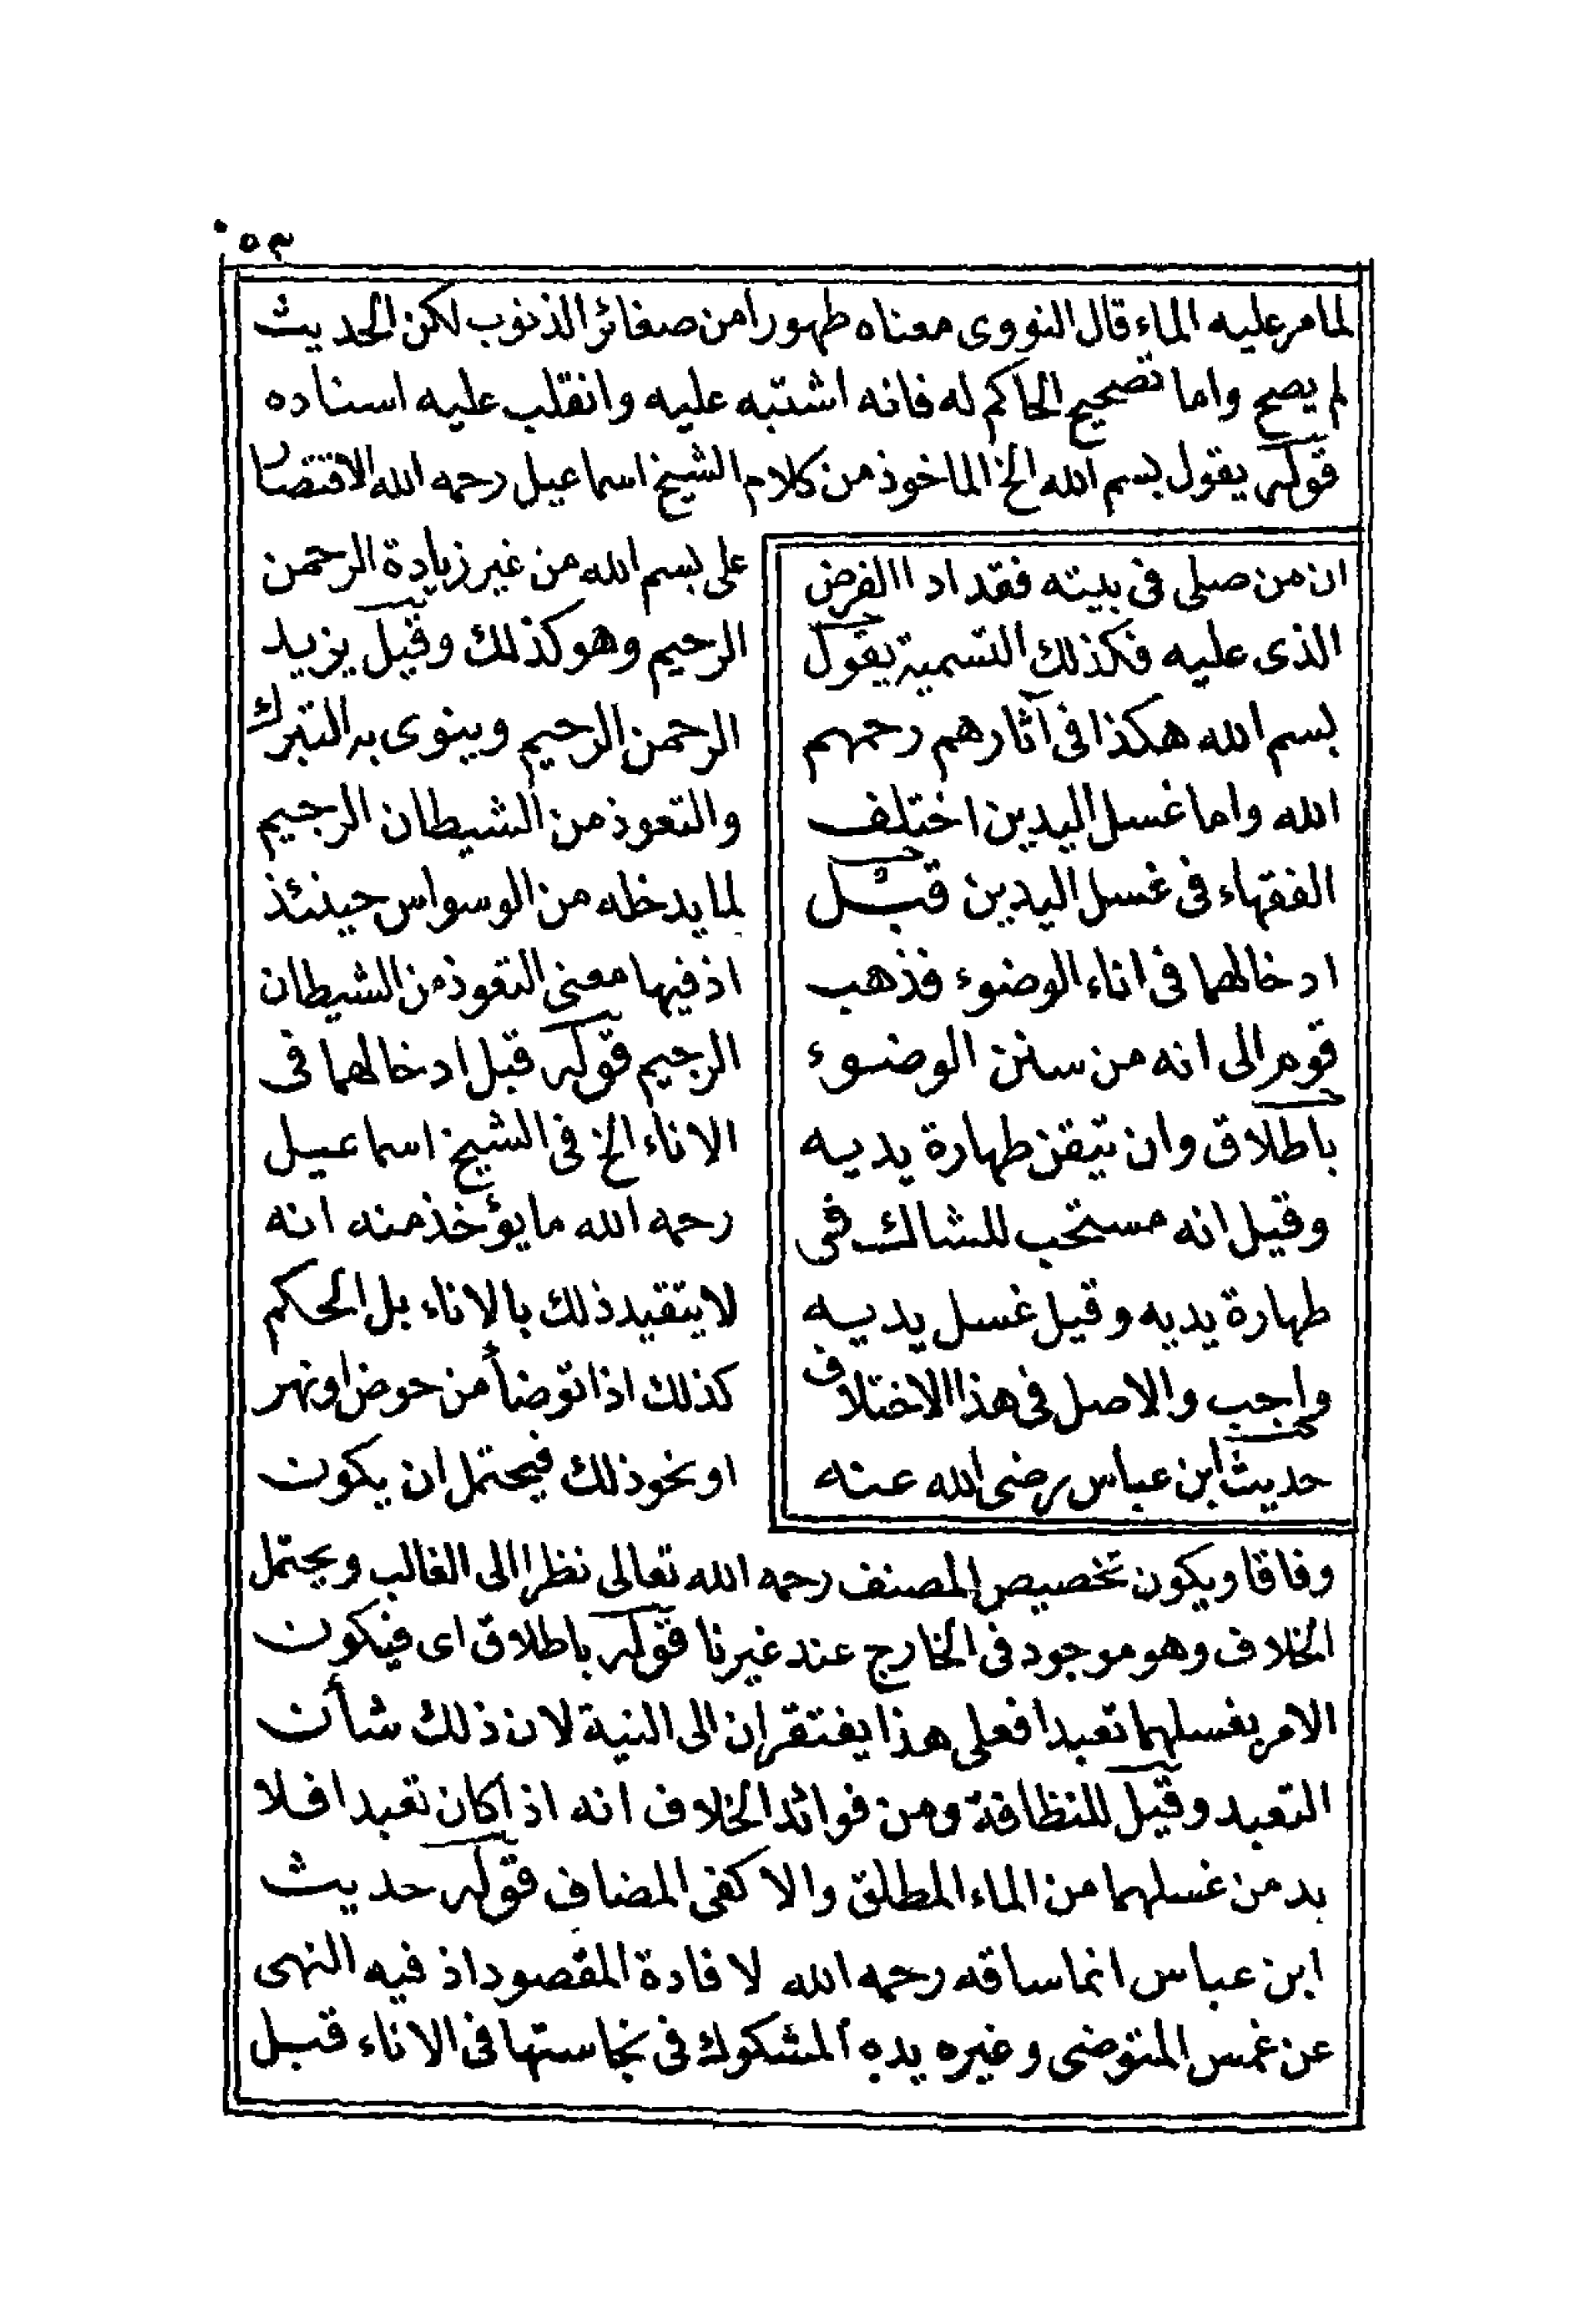 ٥٣
لما مر عليه الماء قال النووى معناه طهورا من صغائر الذنوب لكن الحديث
لم يصح واما تصحيح الحاكم له فانه اشتبه عليه وانقلب عليه اسناده
قوله يقول بسم الله الخ الماخوذ من كلام الشيخ اسماعيل رحمه الله الاقتصار
ان من صلى فى بيته فقد ادا الفرض
الذى عليه فكذلك التسمية يقول
بسم الله هكذا فى آثارهم رحمهم
الله واما غسل اليدين اختلف
الفقهاء فى غسل اليدين قبل
ادخالهما فى اناء الوضوء فذهب
قوم الى انه من سنن الوضوء
باطلاق وان تيقن طهارة يديه
وقيل انه مستحب للشاك فى
طهارة يديه وقيل غسل يديه
واجب والاصل فى هذا الاختلاف
حديث ابن عباس رضى الله عنه
على بسم الله من غير زيادة الرحمن
الرحيم وهو كذلك وقيل يزيد
الرحمن الرحيم وينوى به التبرك
والتعوذ من الشيطان الرجيم
لما يدخله من الوسواس حينئذ
اذ فيها معنى التعوذ من الشيطان
الرجيم قوله قبل ادخالهما فى
الاناء الخ فى الشيخ اسماعيل
رحمه الله ما يؤخذ منه انه
لا يتقيد ذلك بالاناء بل الحكم
كذلك اذا توضأ من حوض او نهر
او نحو ذلك فيحتمل ان يكون
وفاقا ويكون تخصيص المصنف رحمه الله تعالى نظرا الى الغالب ويحتمل
الخلاف وهو موجود فى الخارج عند غيرنا قوله باطلاق اى فيكون
الامر بغسلهما تعبدا فعلى هذا يفتقران الى النية لان ذلك شأن
التعبد وقيل للنظافة ومن فوائد الخلاف انه اذا كان تعبدا فلا
بد من غسلهما من الماء المطلق والا كفى المضاف قوله حديث
ابن عباس انما ساقه رحمه الله لافادة المقصود اذ فيه النهى
عن غمس المتوضى وغيره يده المشكوك فى نجاستها فى الاناء قبل